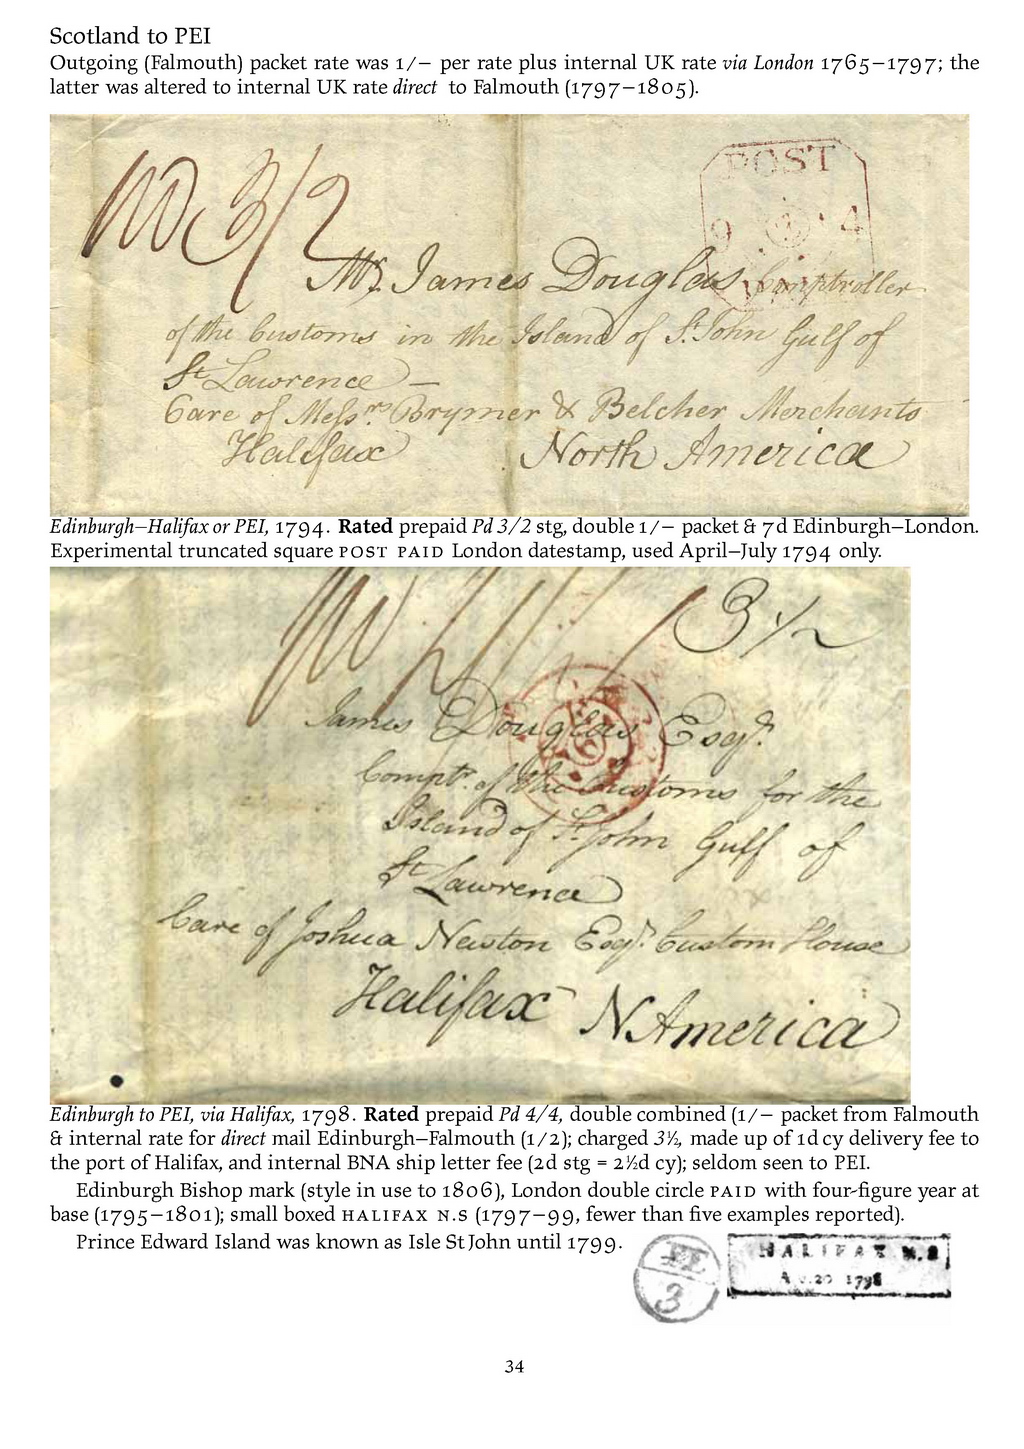 Scotland to PEI
Outgoing (Falmouth) packet rate was 1/– per rate plus internal UK rate via London 1765–1797; the
latter was altered to internal UK rate direct to Falmouth (1797–1805).
POST
9 4
Pd 3/2
Mr. James Douglas Comptroller
of the Customs in the Island of St. John Gulf of
St Lawrence –
Care of Messrs Brymer & Belcher Merchants
Halifax North America
Edinburgh–Halifax or PEI, 1794. Rated prepaid Pd 3/2 stg, double 1/– packet & 7d Edinburgh–London.
Experimental truncated square POST PAID London datestamp, used April–July 1794 only.
3½
James Douglas Esqr.
Comptr. of the Customs for the
Island of St. John Gulf of
St Lawrence
Care of Joshua Newton Esqr. Custom House
Halifax N America
Edinburgh to PEI, via Halifax, 1798. Rated prepaid Pd 4/4, double combined (1/– packet from Falmouth
& internal rate for direct mail Edinburgh–Falmouth (1/2); charged 3½, made up of 1d cy delivery fee to
the port of Halifax, and internal BNA ship letter fee (2d stg = 2½d cy); seldom seen to PEI.
Edinburgh Bishop mark (style in use to 1806), London double circle PAID with four-figure year at
base (1795–1801); small boxed HALIFAX N.S (1797–99, fewer than five examples reported).
Prince Edward Island was known as Isle St John until 1799.
FE
3
HALIFAX N.S
Au.20 1798
34